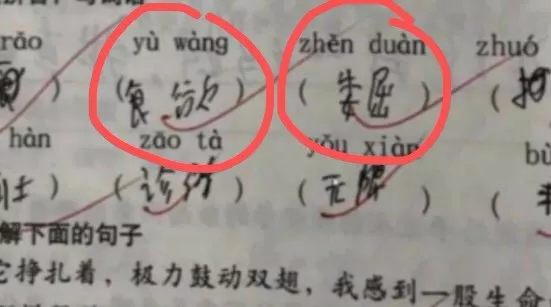 rǎo yù wàng zhěn duàn zhuó
( 食 欲 ) ( 委屈 ) (
hàn zāo tà yǒu xiàn bù
) ( 诊 ) ( 无限 ) (
解下面的句子
它挣扎着，极力鼓动双翅，我感到一股生命